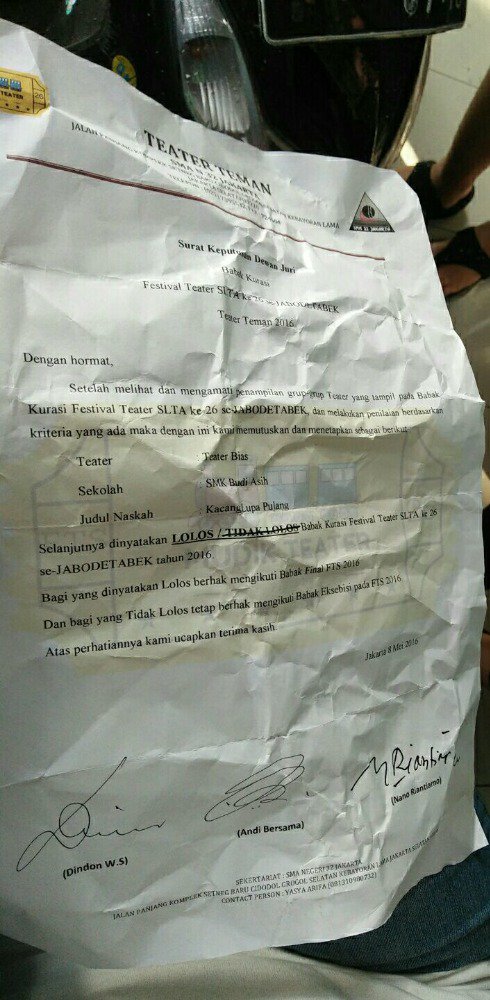 TEATER
TEATER TEMAN
SMA N 32 JAKARTA
KEBAYORAN LAMA
SMA 32 JAKARTA
Surat Keputusan Dewan Juri
Babak Kurasi
Festival Teater SLTA ke 26 se-JABODETABEK
Teater Teman 2016
Dengan hormat,
Setelah melihat dan mengamati penampilan grup-grup Teater yang tampil pada Babak
Kurasi Festival Teater SLTA ke 26 se-JABODETABEK, dan melakukan penilaian berdasarkan
kriteria yang ada maka dengan ini kami memutuskan dan menetapkan sebagai berikut:
Teater : Teater Bias
Sekolah : SMK Budi Asih
Judul Naskah : KacangLupa Pulang
Selanjutnya dinyatakan LOLOS / TIDAK LOLOS Babak Kurasi Festival Teater SLTA ke 26
se-JABODETABEK tahun 2016.
Bagi yang dinyatakan Lolos berhak mengikuti Babak Final FTS 2016
Dan bagi yang Tidak Lolos tetap berhak mengikuti Babak Eksebisi pada FTS 2016.
Atas perhatiannya kami ucapkan terima kasih.
Jakarta 8 Mei 2016
N Riantiarno
(Dindon W.S) (Andi Bersama) (Nano Riantiarno)
SEKERTARIAT : SMA NEGERI 32 JAKARTA
JALAN PANJANG KOMPLEK SETNEG BARU CIDODOL GROGOL SELATAN KEBAYORAN LAMA JAKARTA SELATAN
CONTACT PERSON : YASYA ARIFA (081310900732)